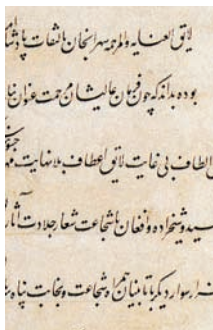 لایق العنایه والمرحمه سرانجان بالتفات پادشا
بوده بداند که چون فرمان عالیشان مرحمت عنوان
الطاف بی غایت لایق اعطاف بلا نهایت
سید و شیخزاده و افغان باشجاعت شعار جلادت آثار
سوار دیگر با تابینان همراه شجاعت و نجابت پناه